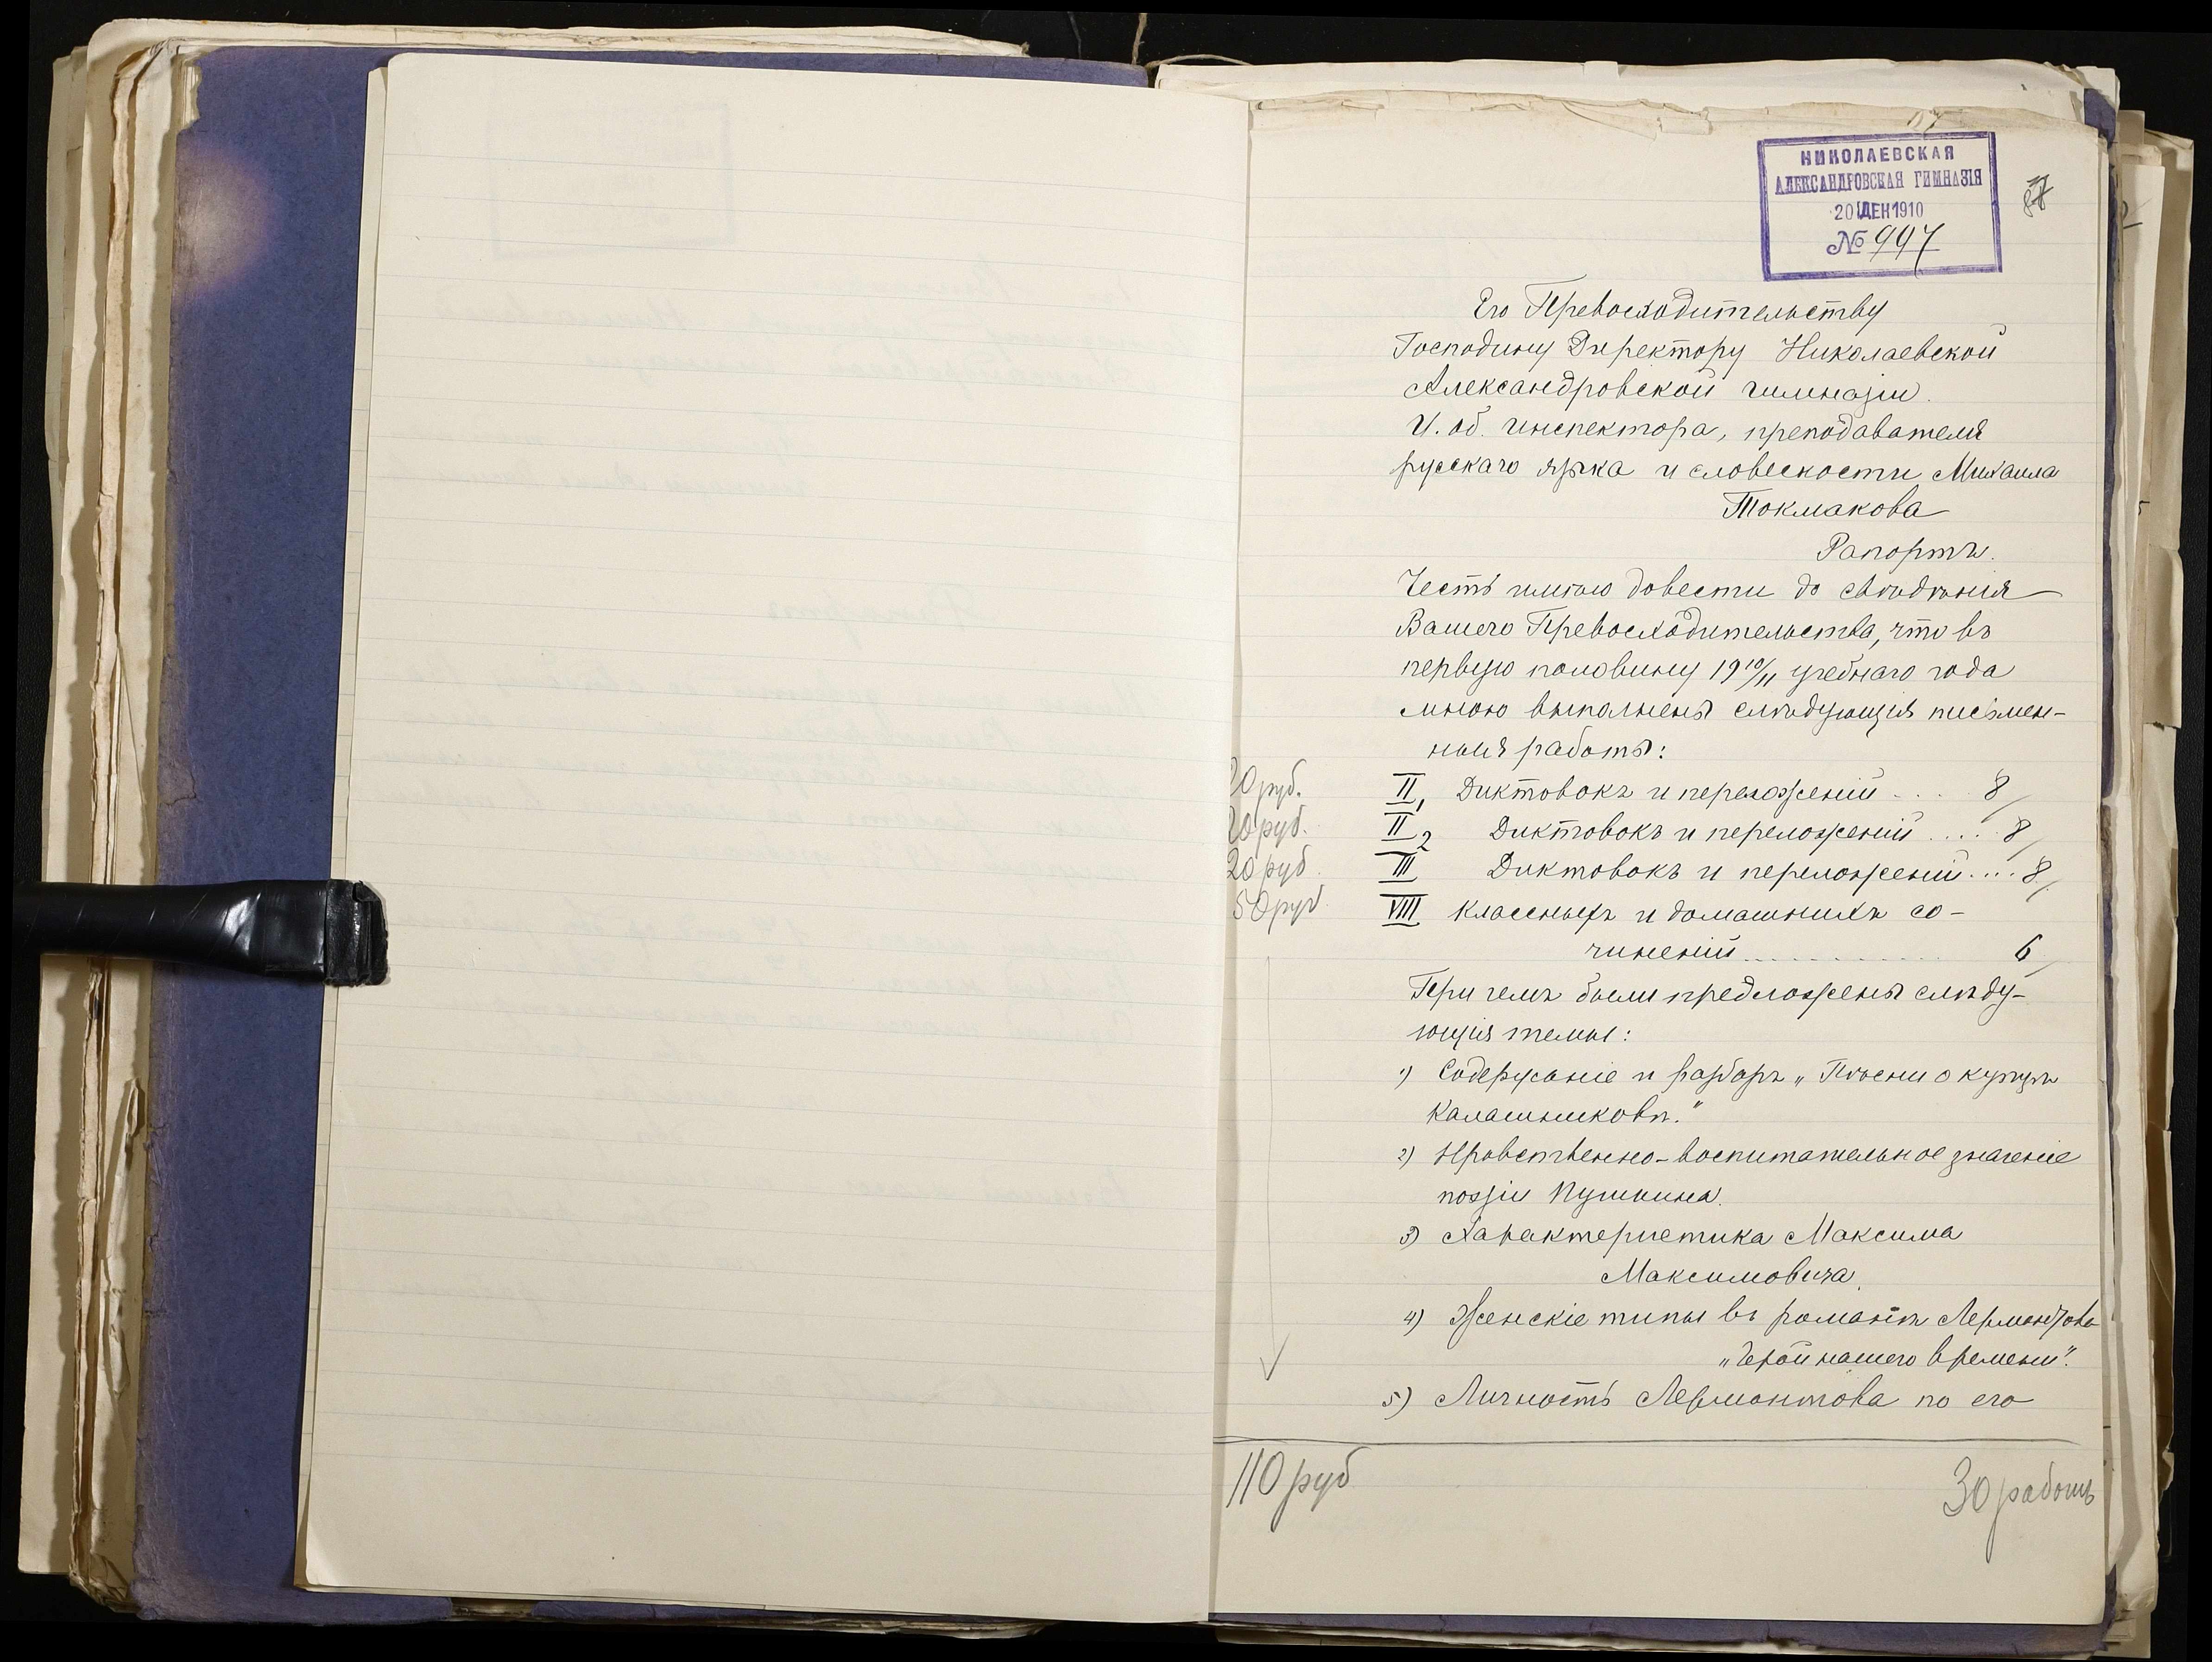 НИКОЛАЕВСКАЯ
АЛЕКСАНДРОВСКАЯ ГИМНАЗІЯ
20 ДЕК 1910
№ 997
Его Превосходительству
Господину Директору Николаевской
Александровской гимназіи.
И. об. инспектора, преподавателя
русскаго языка и словесности Михаила
Токмакова
Рапортъ.
Честь имѣю довести до свѣдѣнія
Вашего Превосходительства, что въ
первую половину 19 10/11 учебнаго года
мною выполнены слѣдующія письмен-
ныя работы:
20 руб. II1 Диктовокъ и переложеній .... 8
20 руб. II2 Диктовокъ и переложеній .... 8
20 руб. III Диктовокъ и переложеній .... 8
50 руб VIII классныхъ и домашнихъ со-
чиненій ............ 6
При чемъ были предложены слѣду-
ющія темы:
1) Содержаніе и разборъ „Пѣсни о купцѣ
Калашниковѣ."
2) Нравственно-воспитательное значеніе
поэзіи Пушкина.
3) Характеристика Максима
Максимовича.
4) Женскіе типы въ романѣ Лермонтова
„Герой нашего времени".
5) Личность Лермонтова по его
110 руб 30 работъ